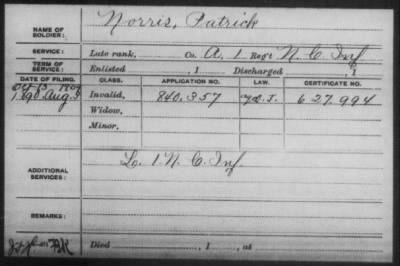 NAME OF SOLDIER: Norris, Patrick
SERVICE: Late rank, Co. A, 1 Reg't N. C. Inf
TERM OF SERVICE: Enlisted , 1 Discharged , 1
DATE OF FILING. CLASS. APPLICATION NO. LAW. CERTIFICATE NO.
1890 Aug. 5 Invalid, 840.357 627.994
Widow,
Minor,
ADDITIONAL SERVICES: Co. I. N. C. Inf.
REMARKS:
Died , 1 , at